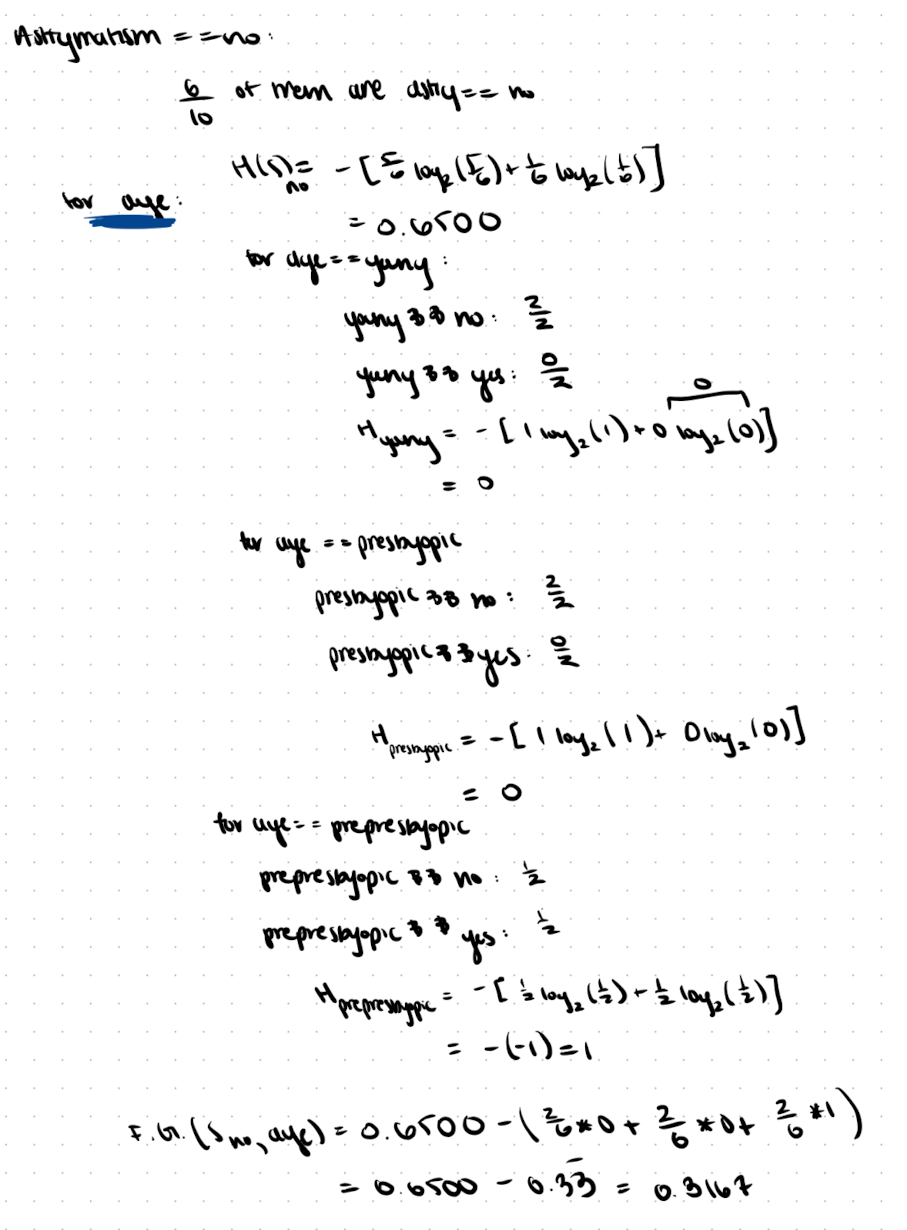 Astigmatism == no:
6/10 of them are astig == no
H(S)no = -[5/6 log₂(5/6) + 1/6 log₂(1/6)]
for age:
= 0.6500
for age == young:
young && no: 2/2
young && yes: 0/2
0
H young = -[1 log₂(1) + 0 log₂(0)]
= 0
for age == presbyopic
presbyopic && no: 2/2
presbyopic && yes: 0/2
H presbyopic = -[1 log₂(1) + 0 log₂(0)]
= 0
for age == prepresbyopic
prepresbyopic && no: 1/2
prepresbyopic && yes: 1/2
H prepresbyopic = -[1/2 log₂(1/2) + 1/2 log₂(1/2)]
= -(-1) = 1
I.G.(S no, age) = 0.6500 - (2/6 * 0 + 2/6 * 0 + 2/6 * 1)
= 0.6500 - 0.33̅ = 0.3167